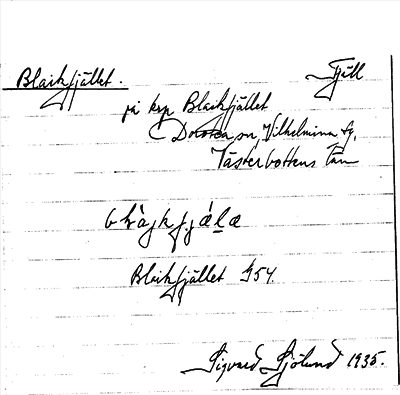 Blaikfjället. Fjäll
på krp Blaikfjället
Dorotea sn, Vilhelmina tg,
Västerbottens län
Blaikfjället 954.
Sigvard Sjölund 1935.